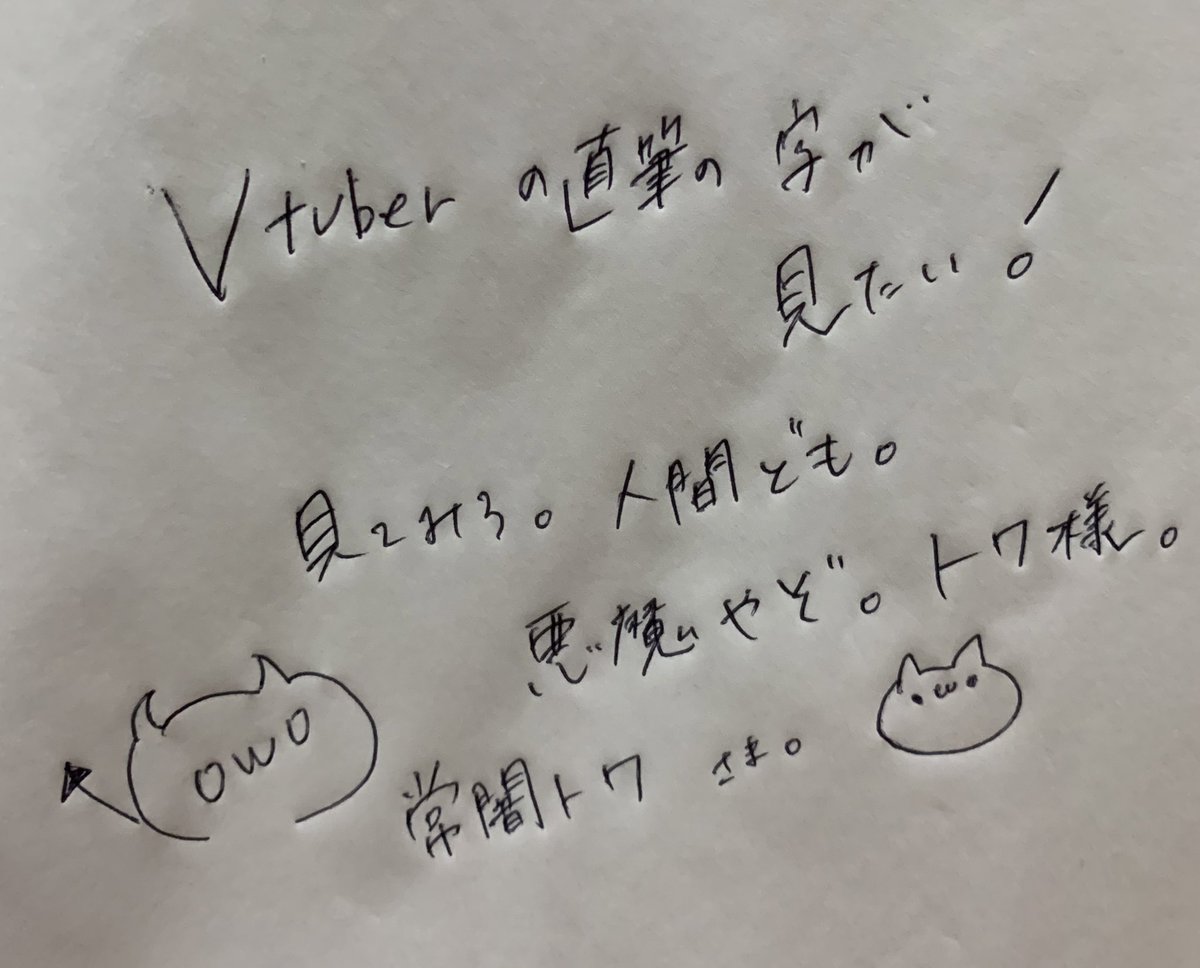 Vtuberの直筆の字が
見たい!
見てみろ。人間ども。
悪魔やぞ。トワ様。
owo
常闇トワ さま。
•ω•